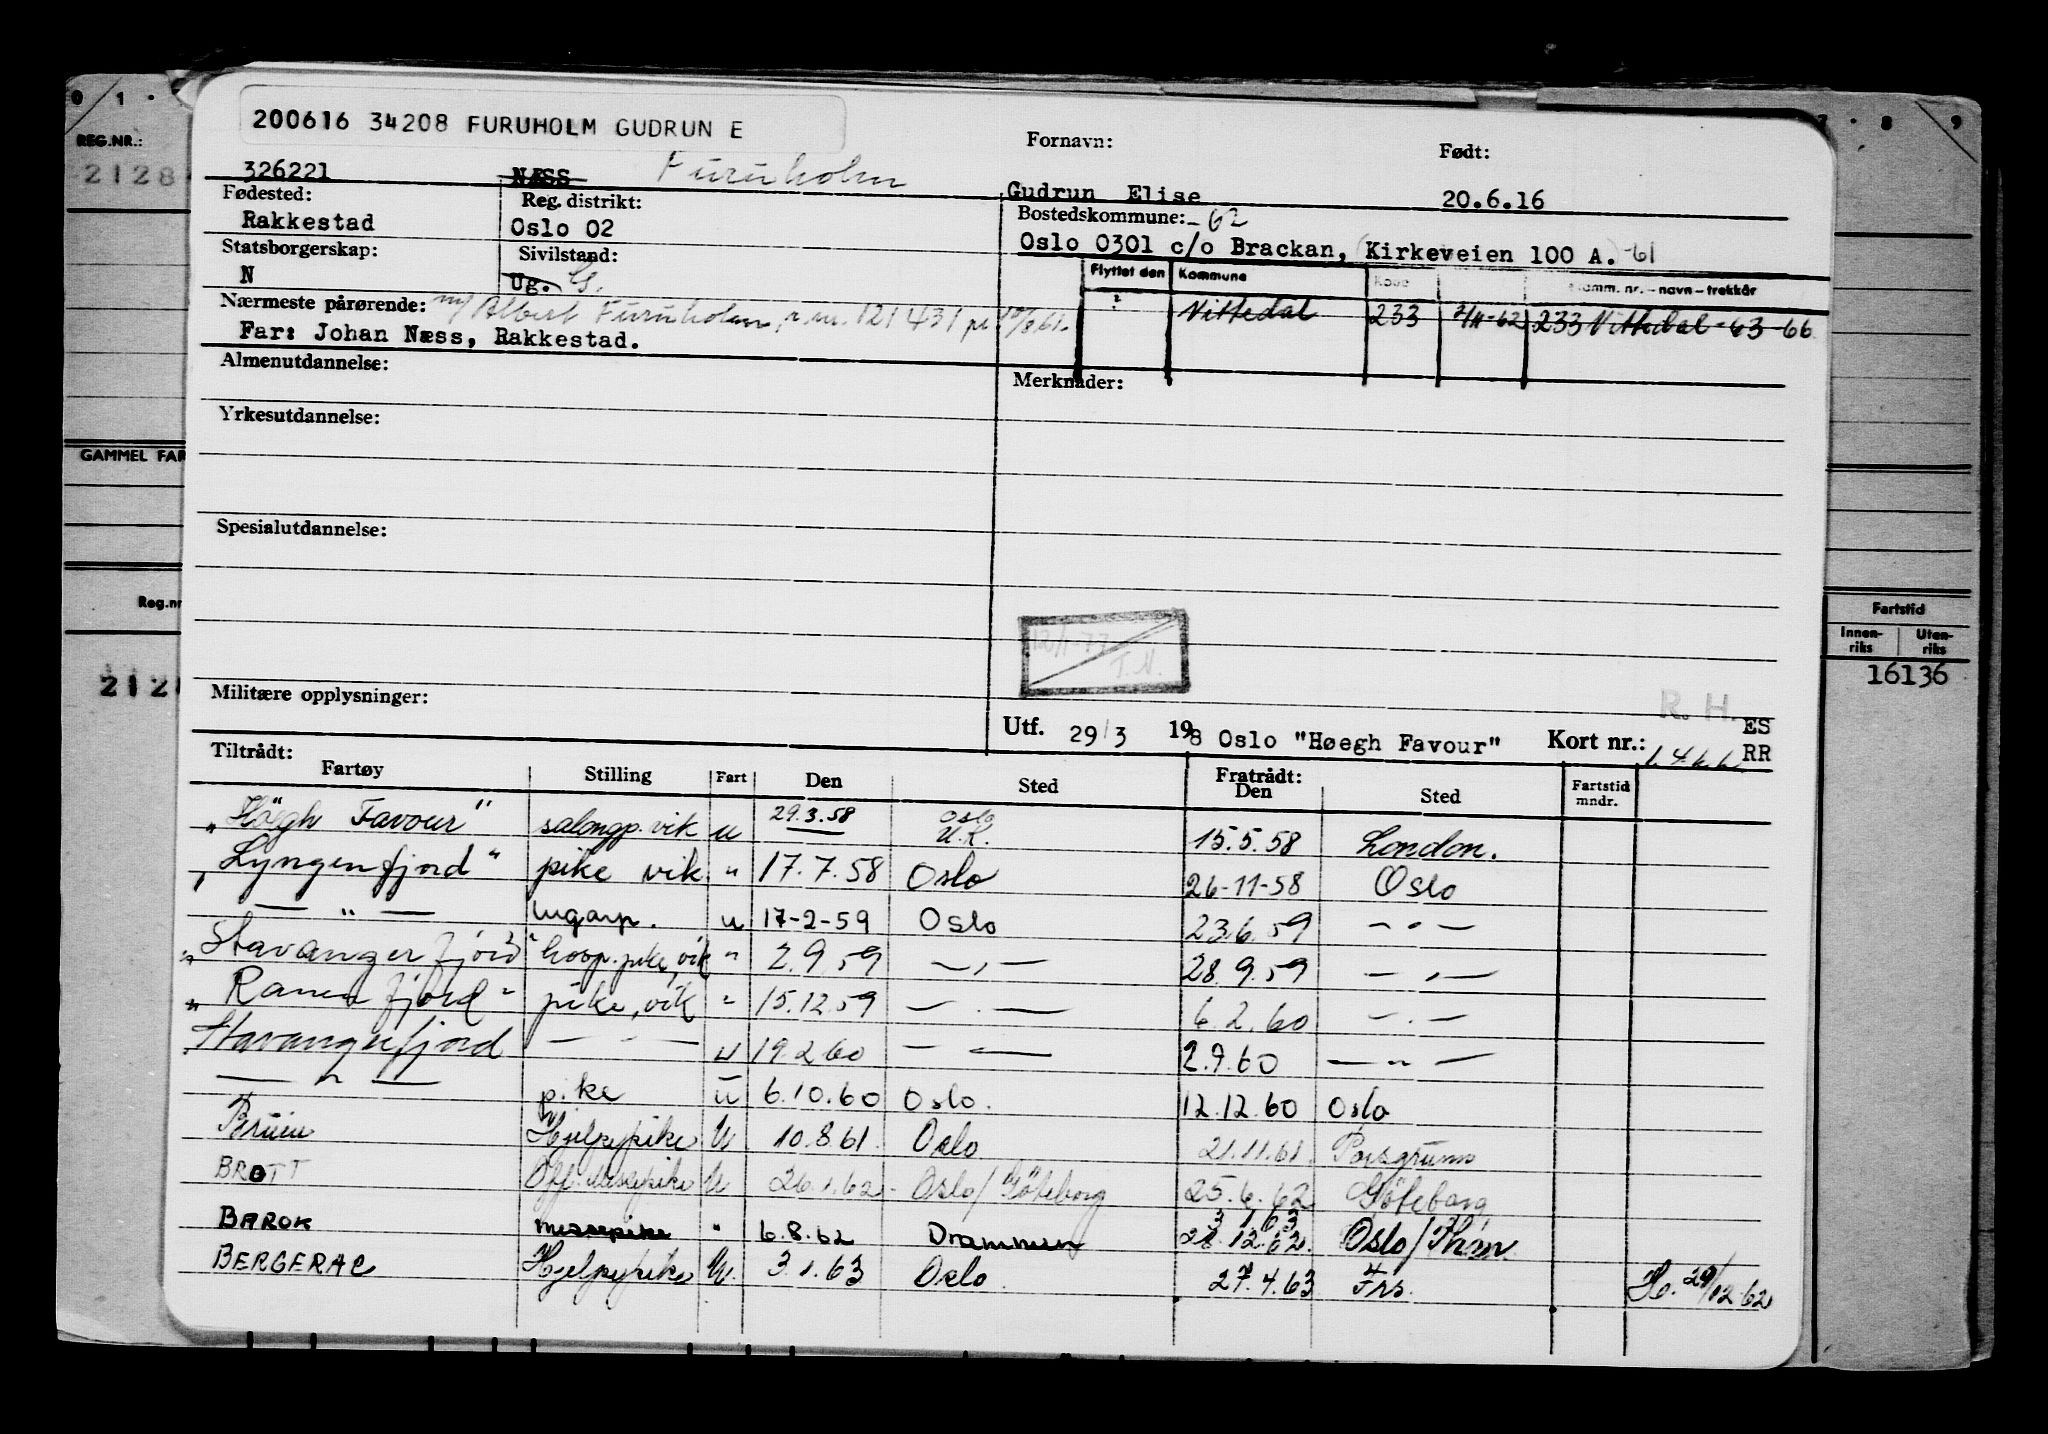 0 1 7 8 9
200616 34208 FURUHOLM GUDRUN E
REG.NR.:
2128
326221 NÆSS Furuholm
Fornavn: Født:
Gudrun Elise 20.6.16
Fødested: Reg. distrikt: Bostedskommune: -62
Rakkestad Oslo 02 Oslo 0301 c/o Brackan, (Kirkeveien 100 A.) -61
Statsborgerskap: Sivilstand:
N Ug. G.
Flyttet den Kommune Kode Komm. nr. – navn – trekkår
Nittedal 233 2/11-62 233 Nittedal -63-66
Nærmeste pårørende: m/ Albert Furuholm, r.nr. 121431
Far: Johan Næss, Rakkestad.
Almenutdannelse: Merknader:
Yrkesutdannelse:
GAMMEL FAR
Spesialutdannelse:
Reg.nr
212
12/1-77
T.N.
Fartstid
Innen-riks Uten-riks
16136
Militære opplysninger:
R. H. ES
Utf. 29/3 1958 Oslo "Høegh Favour" Kort nr.: 1.4.6.6. RR
Tiltrådt: Fratrådt:
Fartøy Stilling Fart Den Sted Den Sted Fartstid mndr.
"Høegh Favour" salongp. vik u 29.3.58 Oslo U.K. 15.5.58 London.
"Lyngenfjord" pike vik " 17.7.58 Oslo 26-11-58 Oslo
— " — lugarp. u 17-2-59 Oslo 23.6.59 — " —
"Stavangerfjord" hosp. pike, vik " 2.9.59 — " — 28.9.59 — " —
"Ranenfjord" pike, vik " 15.12.59 — " — 6.2.60 — " —
"Stavangerfjord — " — u 19.2.60 — " — 2.9.60 — " —
— " — pike u 6.10.60 Oslo. 12.12.60 Oslo
Bruin Hjelpepike U 10.8.61. Oslo 21.11.61. Porsgrunn
BROTT Off. messepike U 26.1.62. Oslo/Göteborg 25.6.62 Göteborg
BAROK messepike " 6.8.62 Drammen 28.12.62. 3.1.63 Oslo/Thm
BERGERAC Hjelpepike U. 3.1.63 Oslo. 27.4.63 Frs. H. 29/12-62